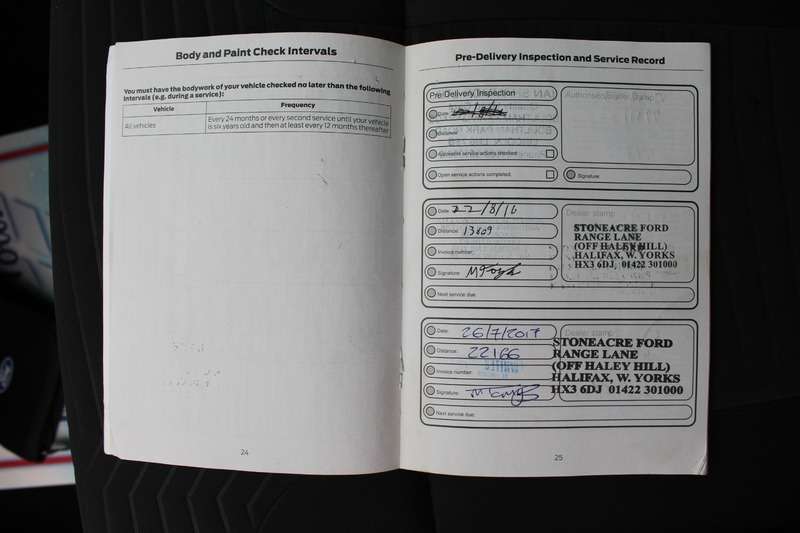 Body and Paint Check Intervals
You must have the bodywork of your vehicle checked no later than the following
intervals (e.g. during a service):
Vehicle Frequency
All vehicles Every 24 months or every second service until your vehicle
is six years old and then at least every 12 months thereafter
24
Pre-Delivery Inspection and Service Record
Pre Delivery Inspection
Date:
Distance:
Applicable service actions checked.
Open service actions completed.
Authorised Dealer Stamp
Signature:
Date: 22/8/16
Distance: 13809
Invoice number:
Signature:
Next service due:
Dealer stamp
STONEACRE FORD
RANGE LANE
(OFF HALEY HILL)
HALIFAX, W. YORKS
HX3 6DJ 01422 301000
Date: 26/7/2017
Distance: 22166
Invoice number:
Signature:
Next service due:
Dealer stamp
STONEACRE FORD
RANGE LANE
(OFF HALEY HILL)
HALIFAX, W. YORKS
HX3 6DJ 01422 301000
25
Ford